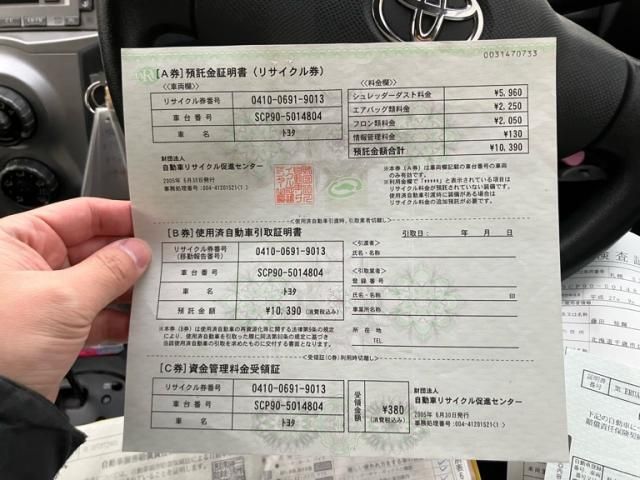 0031470733
[A券] 預託金証明書 (リサイクル券)
<<車両欄>>
リサイクル券番号 0410-0691-9013
車台番号 SCP90-5014804
車名 トヨタ
<<料金欄>>
シュレッダーダスト料金 ¥5,960
エアバッグ類料金 ¥2,250
フロン類料金 ¥2,050
情報管理料金 ¥130
預託金額合計 ¥10,390
財団法人
自動車リサイクル促進センター
2005年 6月30日発行
事務処理番号:004-41201521<1>
※本券(A券)は車両欄記載の車台番号の車両
のみ有効です。
※料金欄で「*****」と表示されている項目は
リサイクル料金が預託されていない装備です。
使用済自動車引渡時に装備がある場合は
リサイクル料金の追加預託が必要です。
<使用済自動車引渡時、引取業者切離し>
[B券] 使用済自動車引取証明書
リサイクル券番号
(移動報告番号) 0410-0691-9013
車台番号 SCP90-5014804
車名 トヨタ
預託金額 ¥10,390 (消費税込み)
※本券(B券)は使用済自動車の再資源化等に関する法律第9条の規定
により、使用済自動車を引取った際に同法第80条の規定に基づき
当該使用済自動車の引取りを求めたものに交付する書面となります。
引取日: 年 月 日
<引渡者>
氏名・名称
<引取業者>
登録番号
氏名・名称 印
事業所名
所在地
TEL
<受領証(C券)利用時切離し>
[C券] 資金管理料金受領証
リサイクル券番号 0410-0691-9013
車台番号 SCP90-5014804
車名 トヨタ
受領金額 ¥380 (消費税込み)
財団法人
自動車リサイクル促進センター
2005年 6月30日発行
事務処理番号:004-41201521<1>
検査証
平成27年
北海道千歳市
証明書
番号
下記の自動車に
賠償責任保険契